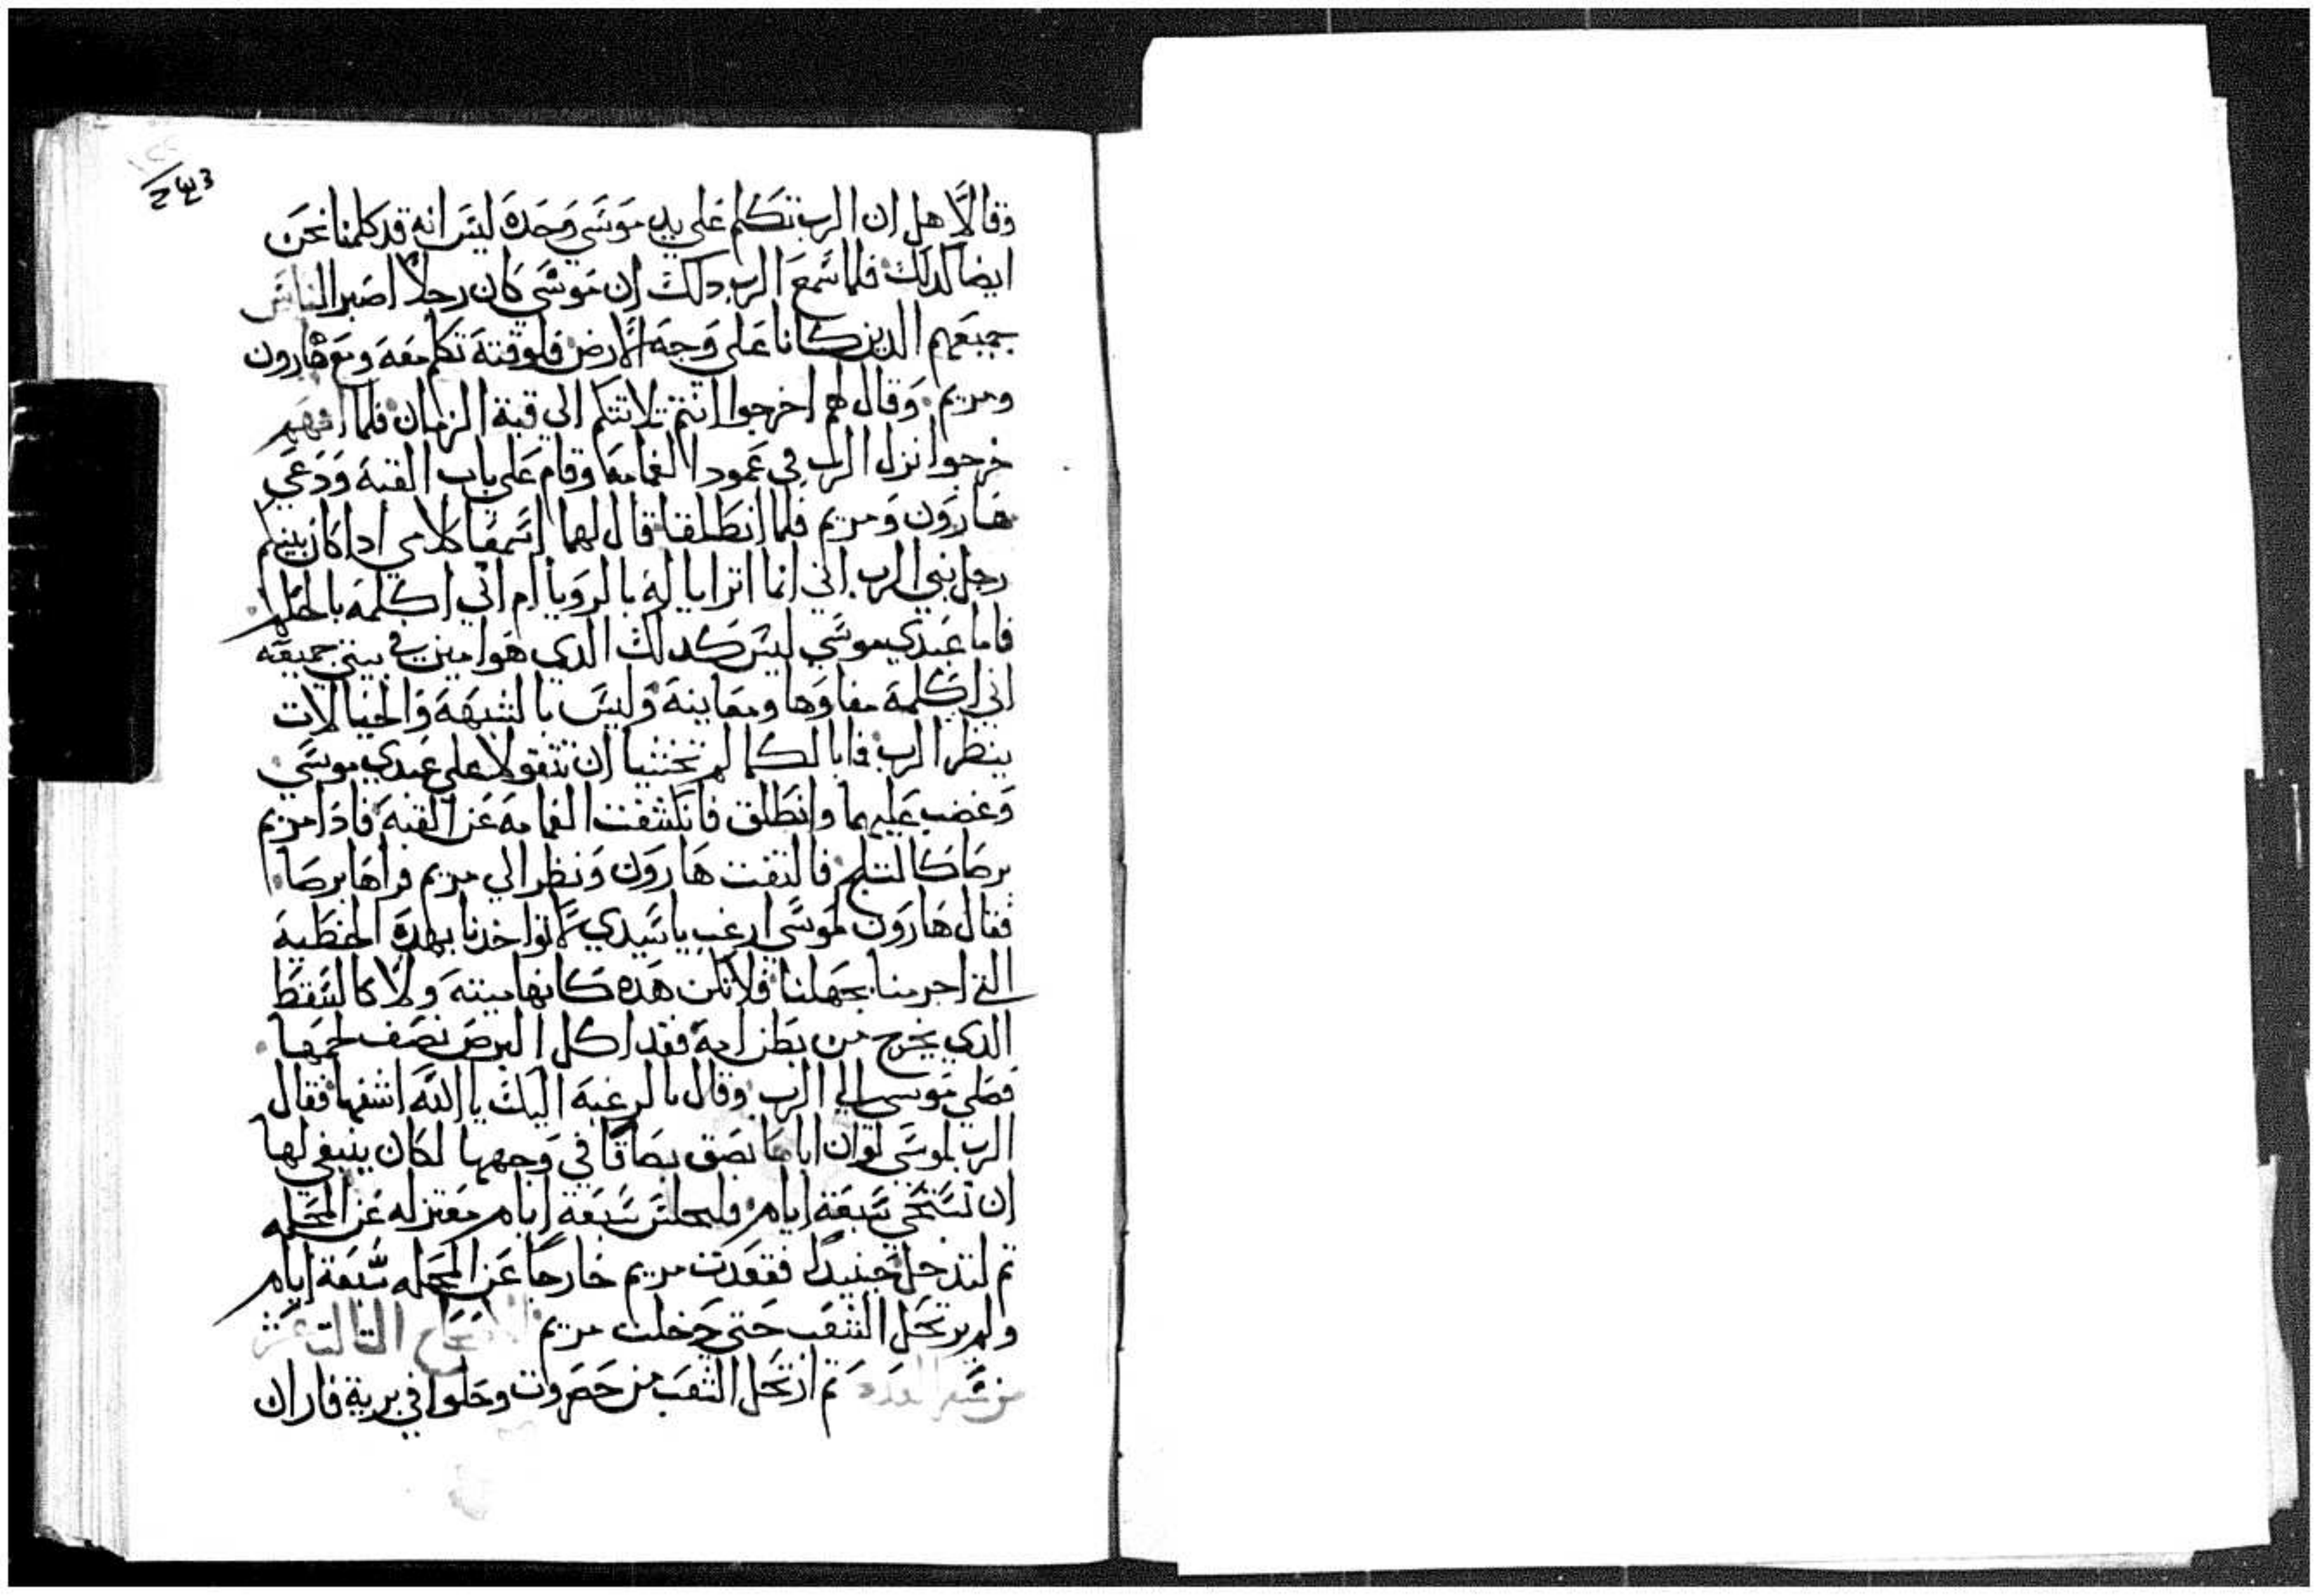 243
وقالا هل ان الرب تكلم على يد موسى وحده ليس انه قد كلمنا نحن
ايضا كدلك فلما سمع الرب دلك ان موسي كان رجلا اصبر الناس
جميعهم الدين كانا على وجه الارض فلوقته تكلم معه ومع هارون
ومريم وقال لهم اخرجوا انتم تلاتتكم الي قبة الزمان فلما
خرجوا نزل الرب في عمود الغمامه وقام على باب القبه ودعي
هارون ومريم فلما انطلقا قال لهما اسمعا كلامي ادا كان بينكم
رجل نبي الرب اني انما اترايا له بالرويا ام اني اكلمه بالحلم
فاما عبدي موسي ليس كدلك الدي هو امين في بيتي جميعه
اني اكلمه مفاوها ومعاينه وليس بالشبهه والخيالات
ينظر الرب فما بالكما لم تخشيا ان تتقولا على عبدي موسي
وغضب عليهما وانطلق فانكشفت الغمامه عن القبه فادا مريم
برصا كالتلج فالتفت هارون ونظر الي مريم فراها برصا
فقال هارون لموسي ارغب ياسيدي لا تواخدنا بهده الخطيه
التي اجرمنا بجهلنا فلا تكن هده كانها ميته ولا كالسقط
الدي يخرج من بطن امه فقد اكل البرص نصف لحمها
فصلي موسي الي الرب وقال بالرغبه اليك يا الله اشفها فقال
الرب لموسي لو ان اباها بصق بصاقا في وجهها لكان ينبغي لها
ان تستحي سبعة ايام فلتجلس سبعة ايام معتزله عن المحله
تم لتدخل حينيد فقعدت مريم خارجا عن المحله سبعة ايام
ولم يرتحل الشعب حتي دخلت مريم الاصحاح التالت عشر
من سفر العدد تم ارتحل الشعب من حصروت وحلوا في برية فاران